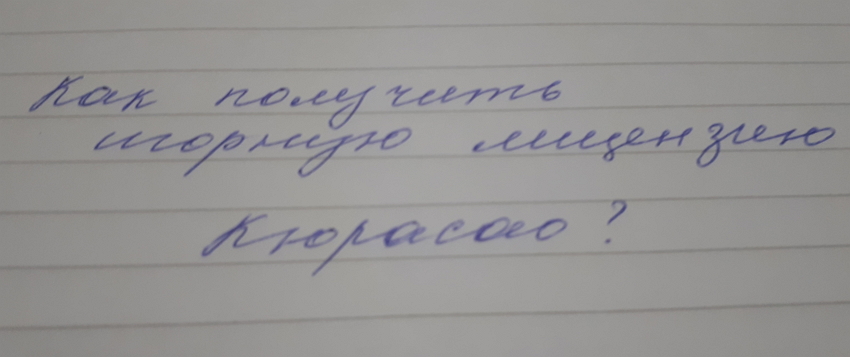 Как получить
игорную лицензию
Кюрасао?